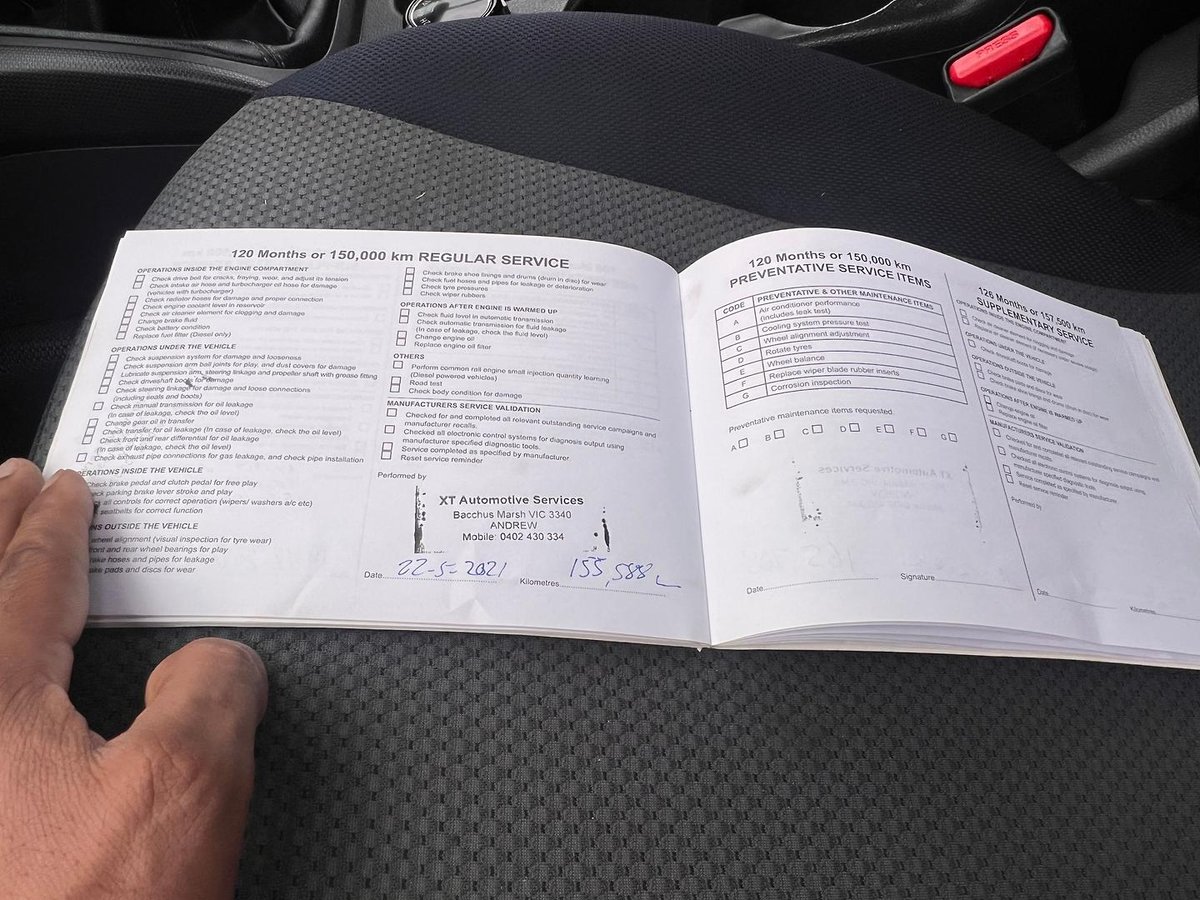 PRESS
120 Months or 150,000 km REGULAR SERVICE
OPERATIONS INSIDE THE ENGINE COMPARTMENT
Check drive belt for cracks, fraying, wear, and adjust its tension
Check intake air hose and turbocharger oil hose for damage
(vehicles with turbocharger)
Check radiator hoses for damage and proper connection
Check engine coolant level in reservoir
Check air cleaner element for clogging and damage
Change brake fluid
Check battery condition
Replace fuel filter (Diesel only)
OPERATIONS UNDER THE VEHICLE
Check suspension system for damage and looseness
Check suspension arm ball joints for play, and dust covers for damage
Lubricate suspension arm, steering linkage and propeller shaft with grease fitting
Check driveshaft boots for damage
Check steering linkage for damage and loose connections
(including seals and boots)
Check manual transmission for oil leakage
(In case of leakage, check the oil level)
Change gear oil in transfer
Check transfer for oil leakage (In case of leakage, check the oil level)
Check front and rear differential for oil leakage
(In case of leakage, check the oil level)
Check exhaust pipe connections for gas leakage, and check pipe installation
PERATIONS INSIDE THE VEHICLE
eck brake pedal and clutch pedal for free play
eck parking brake lever stroke and play
all controls for correct operation (wipers/ washers a/c etc)
seatbelts for correct function
NS OUTSIDE THE VEHICLE
wheel alignment (visual inspection for tyre wear)
front and rear wheel bearings for play
rake hoses and pipes for leakage
ake pads and discs for wear
Check brake shoe linings and drums (drum in disc) for wear
Check fuel hoses and pipes for leakage or deterioration
Check tyre pressures
Check wiper rubbers
OPERATIONS AFTER ENGINE IS WARMED UP
Check fluid level in automatic transmission
Check automatic transmission for fluid leakage
(In case of leakage, check the fluid level)
Change engine oil
Replace engine oil filter
OTHERS
Perform common rail engine small injection quantity learning
(Diesel powered vehicles)
Road test
Check body condition for damage
MANUFACTURERS SERVICE VALIDATION
Checked for and completed all relevant outstanding service campaigns and
manufacturer recalls.
Checked all electronic control systems for diagnosis output using
manufacturer specified diagnostic tools.
Service completed as specified by manufacturer.
Reset service reminder
Performed by
XT Automotive Services
Bacchus Marsh VIC 3340
ANDREW
Mobile: 0402 430 334
Date 22-5-2021 Kilometres 155,588
120 Months or 150,000 km
PREVENTATIVE SERVICE ITEMS
CODE PREVENTATIVE & OTHER MAINTENANCE ITEMS
A Air conditioner performance
(includes leak test)
B Cooling system pressure test
C Wheel alignment adjustment
D Rotate tyres
E Wheel balance
F Replace wiper blade rubber inserts
G Corrosion inspection
Preventative maintenance items requested.
A B C D E F G
Date Signature
126 Months or 157,500 km
SUPPLEMENTARY SERVICE
OPERATIONS INSIDE THE ENGINE COMPARTMENT
OPERATIONS UNDER THE VEHICLE
Check driveshaft boots for damage
OPERATIONS OUTSIDE THE VEHICLE
Check brake pads and discs for wear
Check brake shoe linings and drums (drum in disc) for wear
OPERATIONS AFTER ENGINE IS WARMED UP
Change engine oil
Replace engine oil filter
MANUFACTURERS SERVICE VALIDATION
Checked for and completed all relevant outstanding service campaigns and
manufacturer recalls.
Checked all electronic control systems for diagnosis output using
manufacturer specified diagnostic tools.
Service completed as specified by manufacturer.
Reset service reminder
Performed by
Date Kilometres